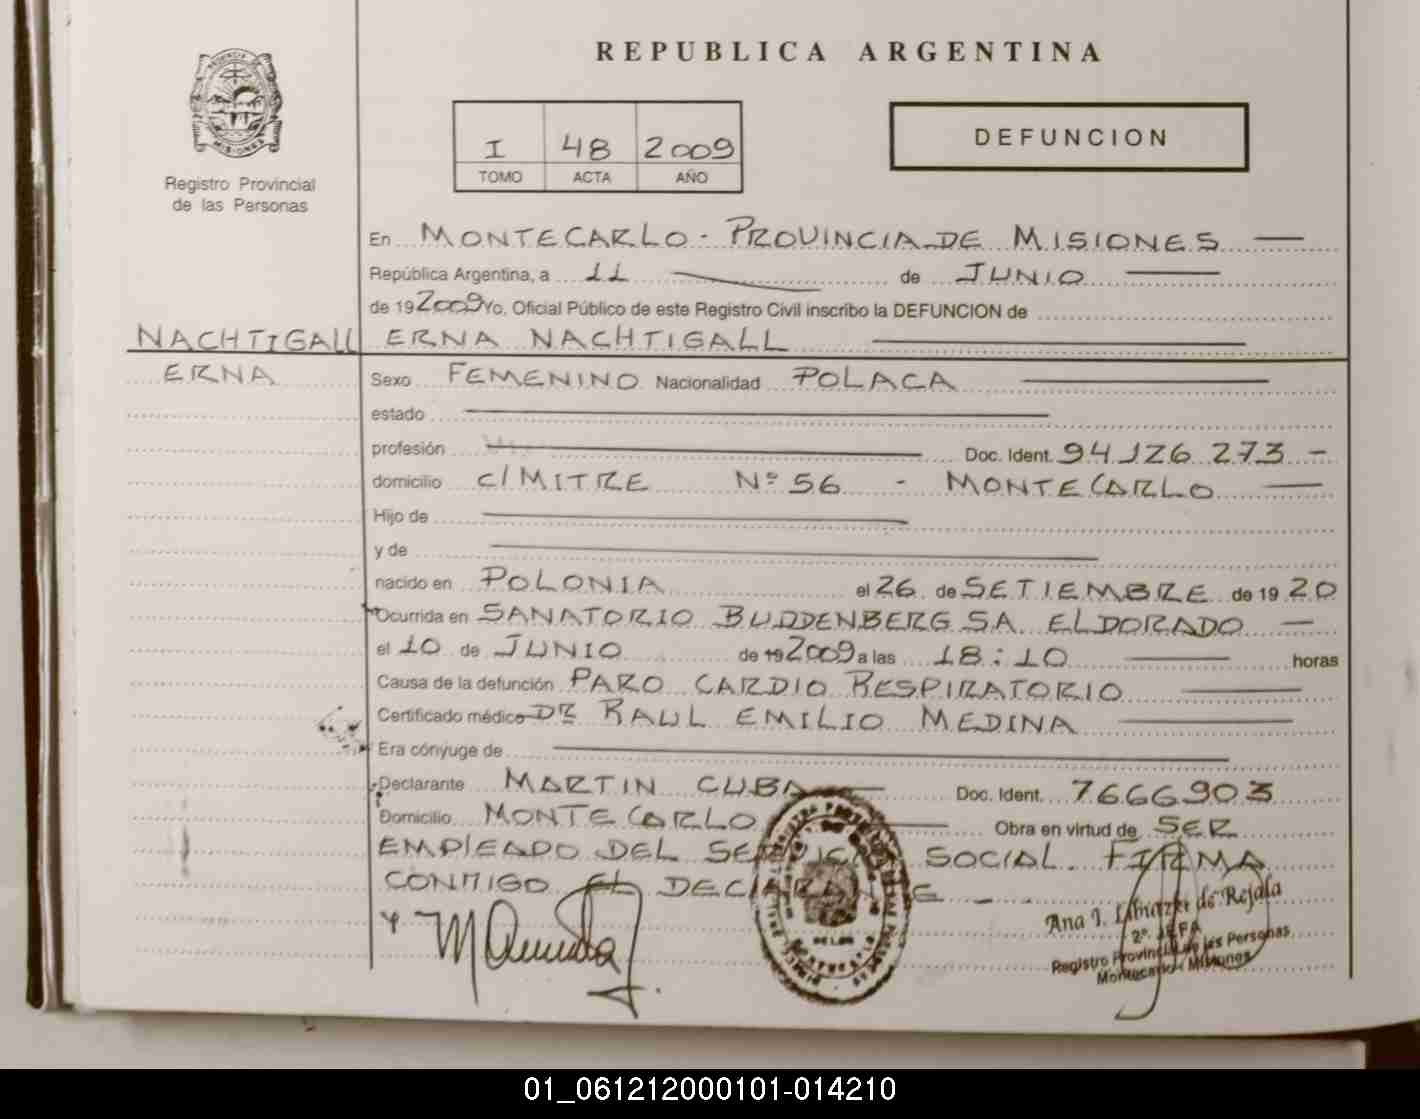 REPUBLICA ARGENTINA
PROVINCIA DE
MISIONES
Registro Provincial
de las Personas
I 48 2009
TOMO ACTA AÑO
DEFUNCION
En MONTECARLO - PROVINCIA DE MISIONES
República Argentina, a 11 de JUNIO
de 19 2009 Yo, Oficial Público de este Registro Civil inscribo la DEFUNCION de
NACHTIGALL ERNA NACHTIGALL
ERNA Sexo FEMENINO Nacionalidad POLACA
estado
profesión Doc. Ident. 94126 273 -
domicilio C/ MITRE Nº 56 - MONTECARLO
Hijo de
y de
nacido en POLONIA el 26 de SETIEMBRE de 1920
Ocurrida en SANATORIO BUDDENBERG S.A. ELDORADO
el 10 de JUNIO de 19 2009 a las 18:10 horas
Causa de la defunción PARO CARDIO RESPIRATORIO
Certificado médico DR RAUL EMILIO MEDINA
Era cónyuge de
Declarante MARTIN CUBA Doc. Ident. 7666903
Domicilio MONTECARLO Obra en virtud de SER
EMPLEADO DEL SERVICIO SOCIAL. FIRMA
CONMIGO EL DECLARANTE
Ana I. de Rejala
2º. JEFA
Registro Provincial de las Personas
Montecarlo - Misiones
01_061212000101-014210